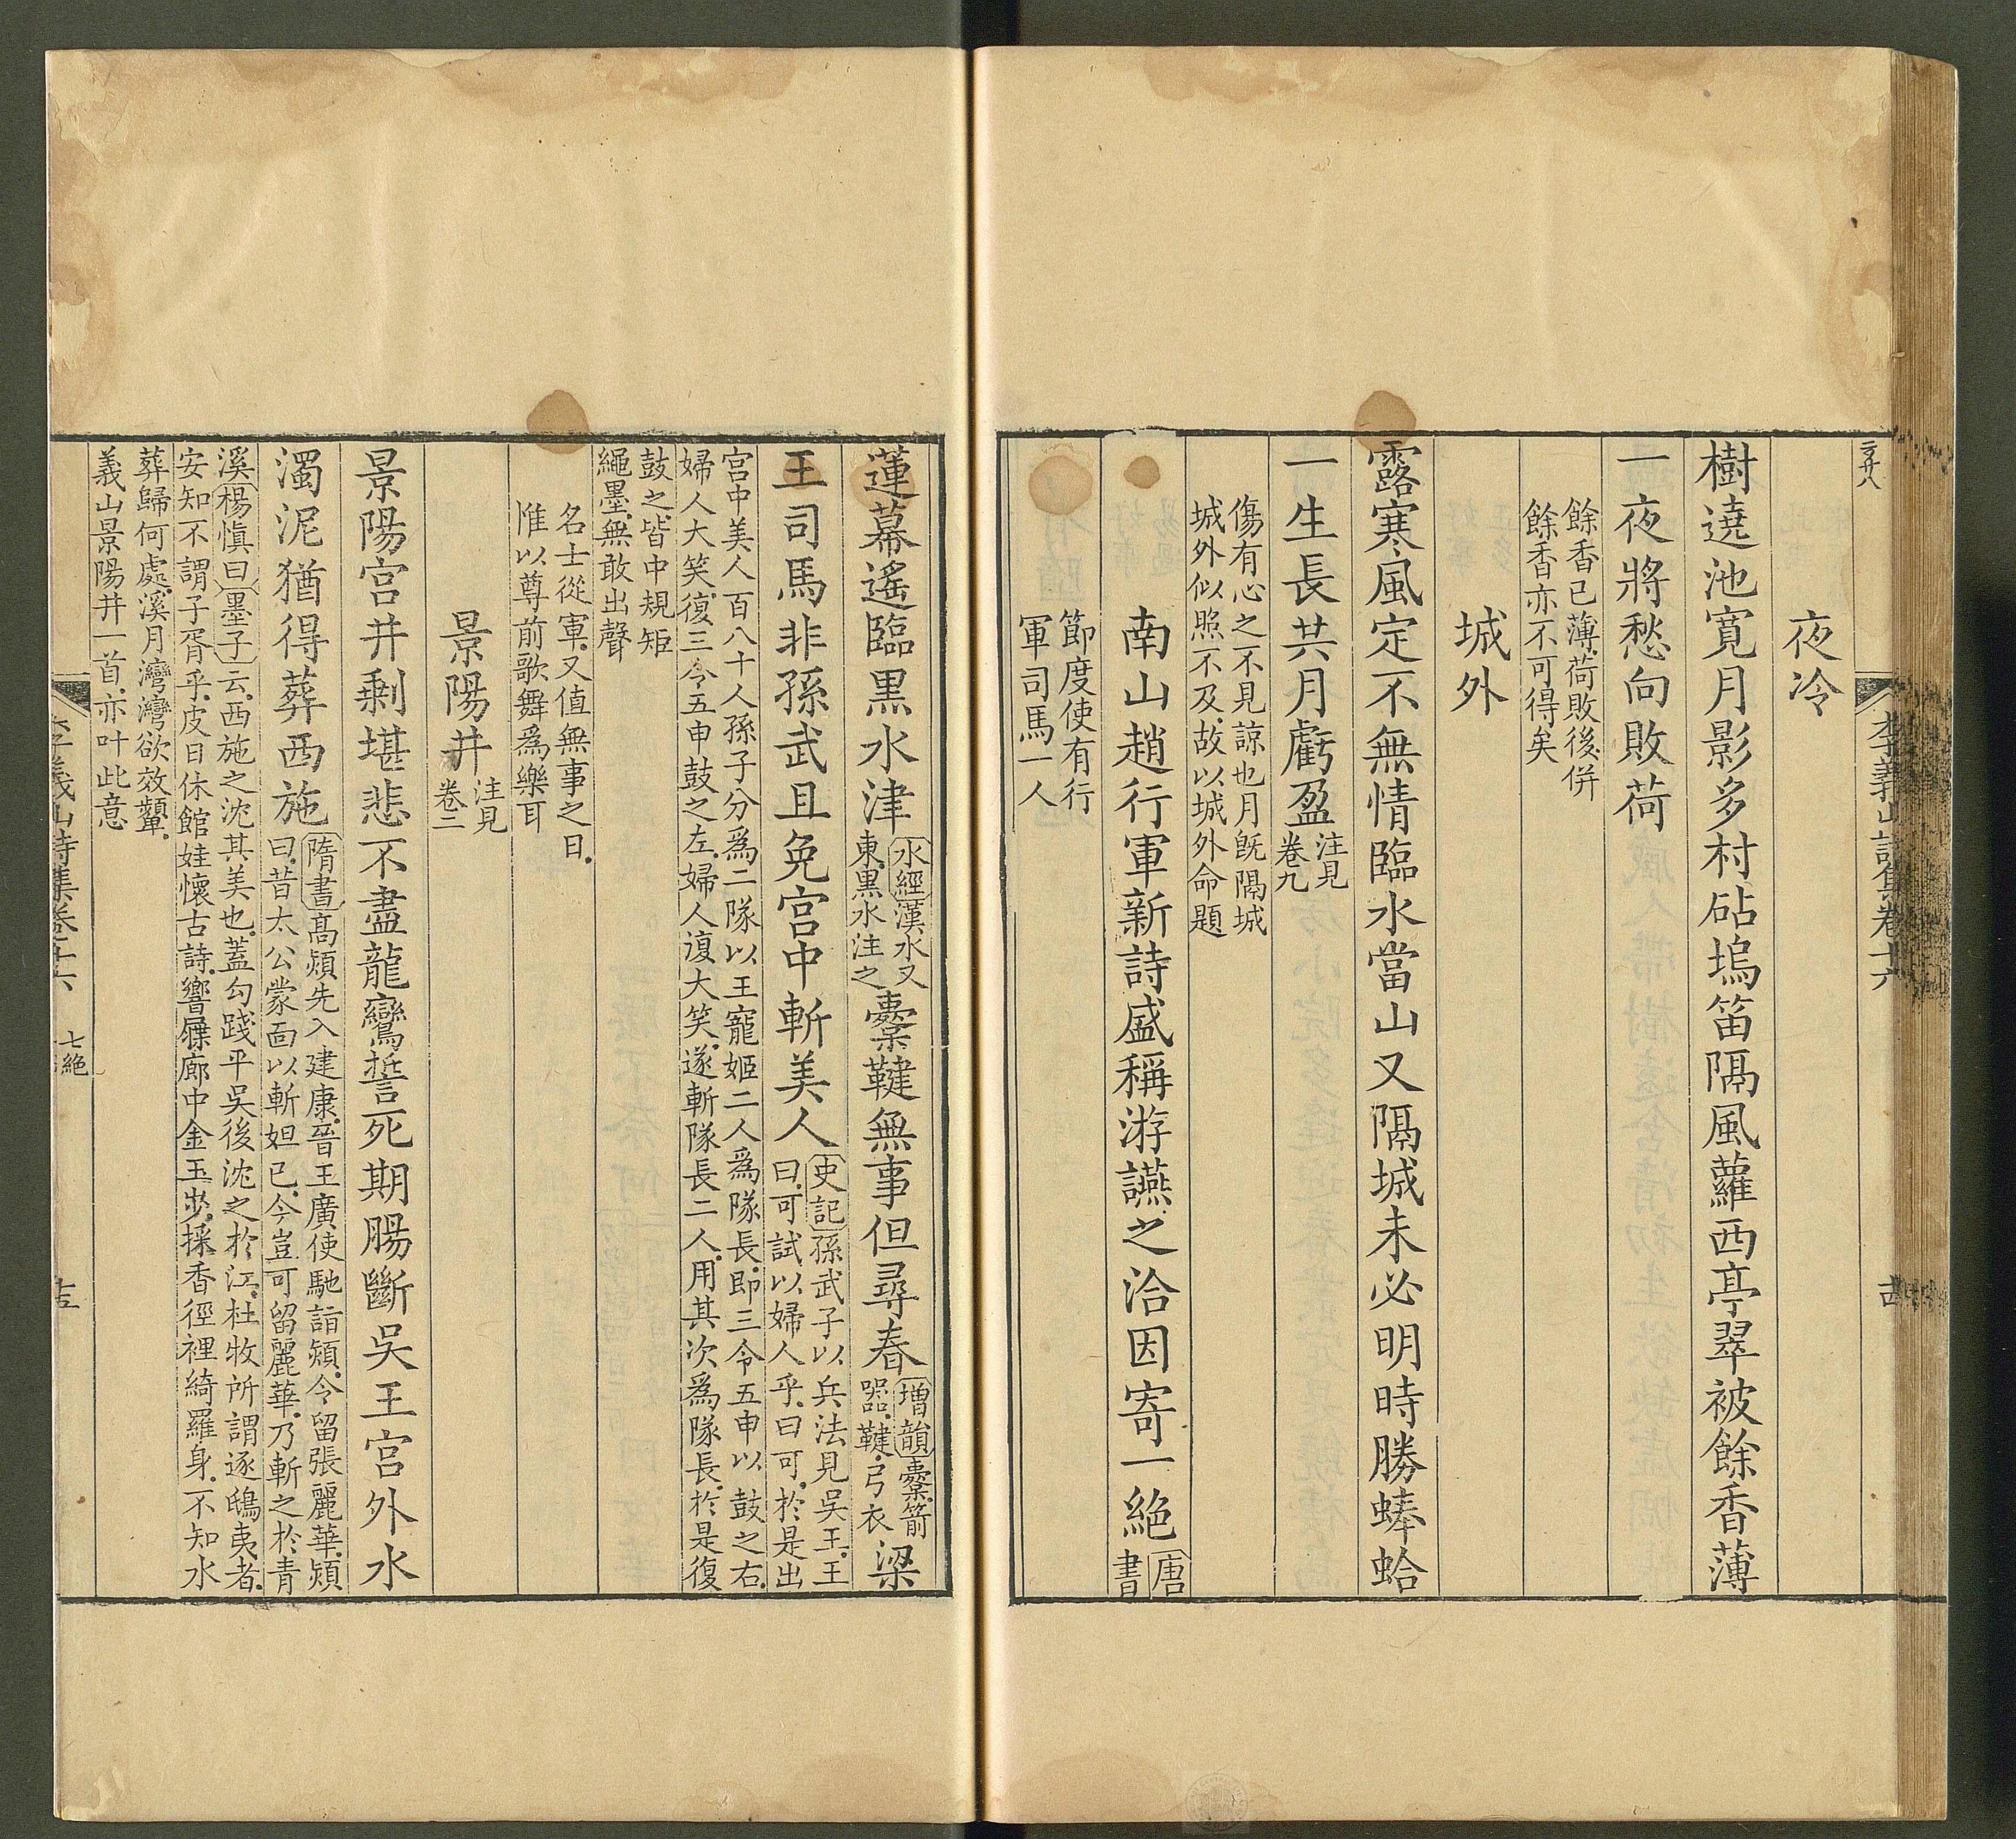 李義山詩集卷十六
夜冷
樹遶池寬月影多村砧塢笛隔風蘿西亭翠被餘香薄
一夜將愁向敗荷
餘香已薄荷敗後併
餘香亦不可得矣
城外
露寒風定不無情臨水當山又隔城未必明時勝蜯蛤
一生長共月虧盈注見
卷九
傷有心之不見諒也月既隔城
城外似照不及故以城外命題
南山趙行軍新詩盛稱游讌之洽因寄一絕唐
書
節度使有行
軍司馬一人
蓮幕遙臨黑水津水經漢水又
東黑水注之櫜鞬無事但尋春增韻櫜箭
器鞬弓衣梁
王司馬非孫武且免宮中斬美人史記孫武子以兵法見吳王王
曰可試以婦人乎曰可於是出
宮中美人百八十人孫子分為二隊以王寵姬二人為隊長即三令五申以鼓之右
婦人大笑復三令五申鼓之左婦人復大笑遂斬隊長二人用其次為隊長於是復
鼓之皆中規矩
繩墨無敢出聲
名士從軍又值無事之日
惟以尊前歌舞為樂耳
景陽井注見
卷二
景陽宮井剩堪悲不盡龍鸞誓死期腸斷吳王宮外水
濁泥猶得葬西施隋書高熲先入建康晉王廣使馳詣熲令留張麗華熲
曰昔太公蒙面以斬妲己今豈可留麗華乃斬之於青
溪楊慎曰墨子云西施之沈其美也蓋勾踐平吳後沈之於江杜牧所謂逐鴟夷者
安知不謂子胥乎皮日休館娃懷古詩響屧廊中金玉步採香徑裡綺羅身不知水
葬歸何處溪月灣灣欲效顰
義山景陽井一首亦叶此意
李義山詩集卷十六 七絕 十五